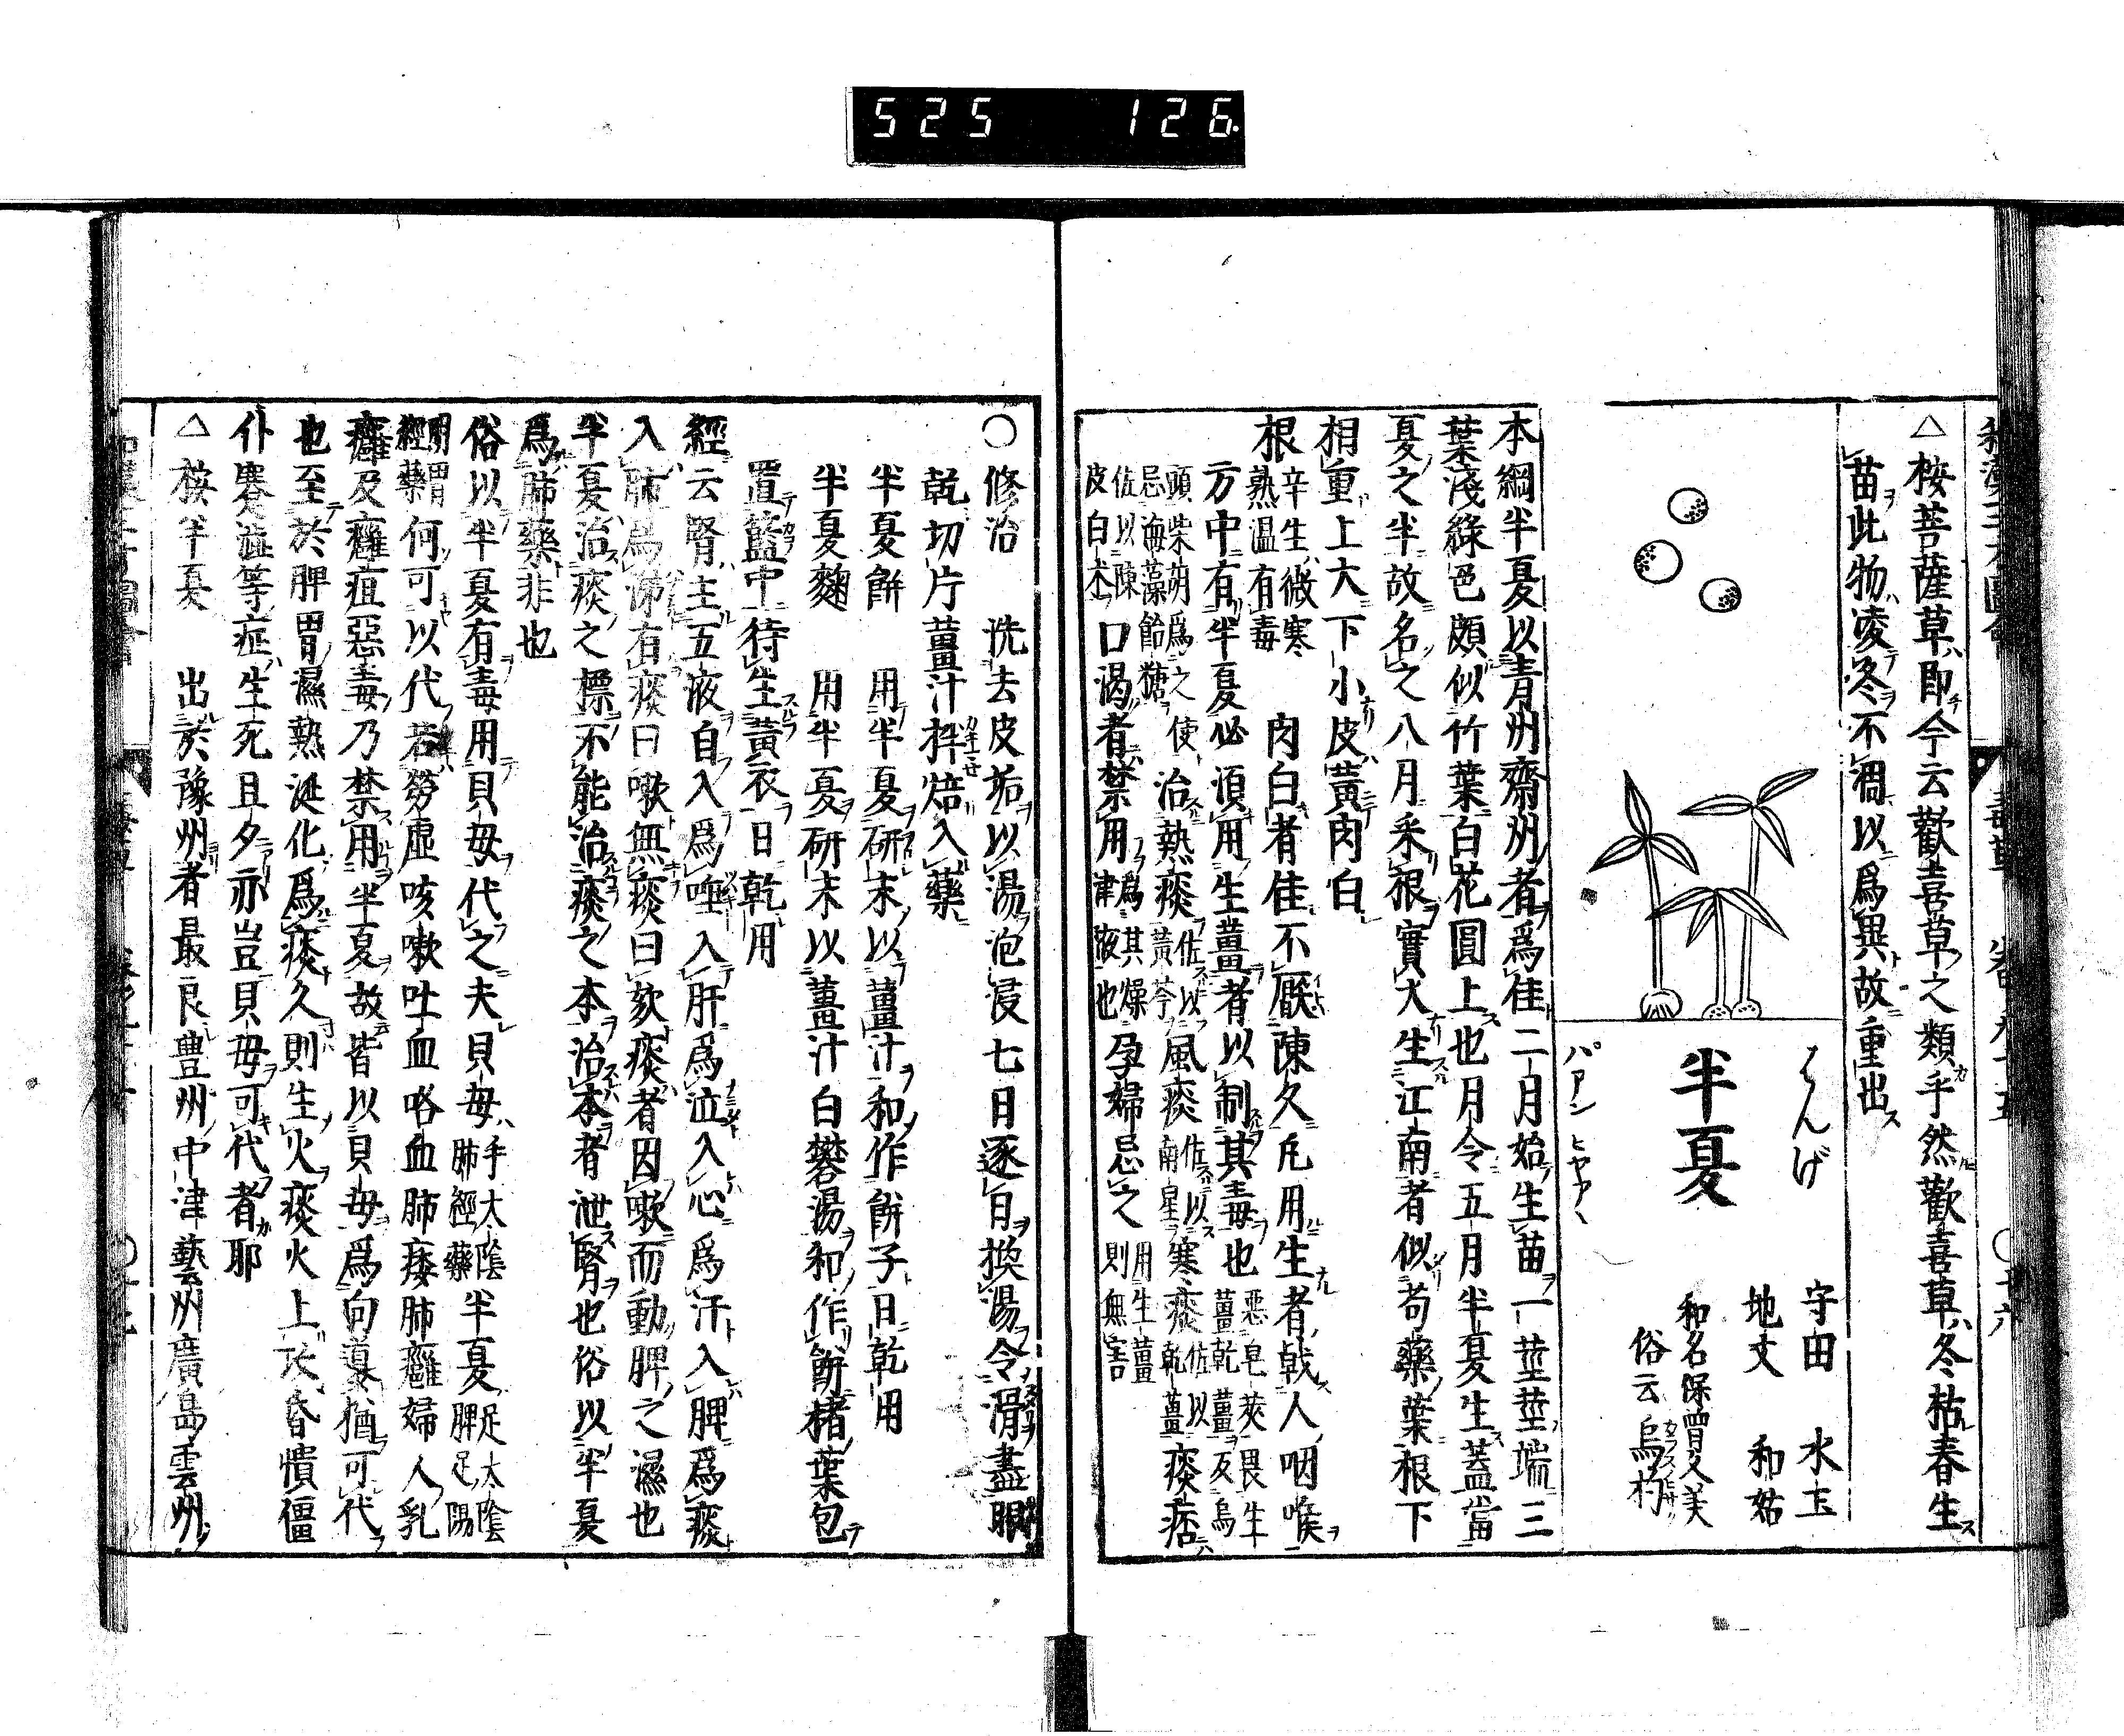 525 126
△桉菩薩草即今云歡喜草之類乎然歡喜草冬枯春生
苗此物凌冬不凋以爲異故重出
はんげ
半夏
パアン ヒヤアヽ
守田 水玉
地文 和姑
和名保曽久美
俗云烏杓
本綱半夏以青州齊州者爲佳二月始生苗一莖莖端三
葉淺綠色頗似竹葉白花圓上也月令五月半夏生蓋當
夏之半故名之八月采根實大生江南者似芍藥葉根下
相重上大下小皮黃肉白
根 辛生微寒熟温有毒 肉白者佳不厭陳久凡用生者戟人咽喉
方中有半夏必須用生薑者以制其毒也 惡皂莢畏生薑乾薑反烏
頭柴胡爲之使忌海藻飴糖 治熱痰 佐以黃芩 風痰 佐以南星 寒痰 佐以乾薑 痰痞
佐以陳皮白朮 口渴者禁用 爲其燥津液也 孕婦忌之 用生薑則無害
○修治 洗去皮垢以湯泡浸七日逐日換湯令滑盡眼
乾切片薑汁拌焙入藥
半夏餅 用半夏研末以薑汁和作餅子日乾用
半夏麴 用半夏研末以薑汁白礬湯和作餅楮葉包
置籃中待生黃衣日乾用
經云腎主五液自入爲唾入肝爲泣入心爲汗入脾爲痰
入肺爲涕有痰曰嗽無痰曰欬痰者因嗽而動脾之濕也
半夏治痰之標不能治痰之本治本者泄腎也俗以半夏
爲肺藥非也
俗以半夏有毒用貝母代之夫貝母 手太陰肺經藥 半夏 足太陰脾足陽
明胃經藥 何可以代若勞虛咳嗽吐血咯血肺痿肺癰婦人乳
癰及癰疽惡毒乃禁用半夏故皆以貝母爲向導猶可代
也至於脾胃濕熱涎化爲痰久則生火痰火上攻昏憒僵
仆蹇澁等症生死且夕亦豈貝母可代者耶
△桉半夏 出於豫州者最良豊州中津藝州廣島雲州